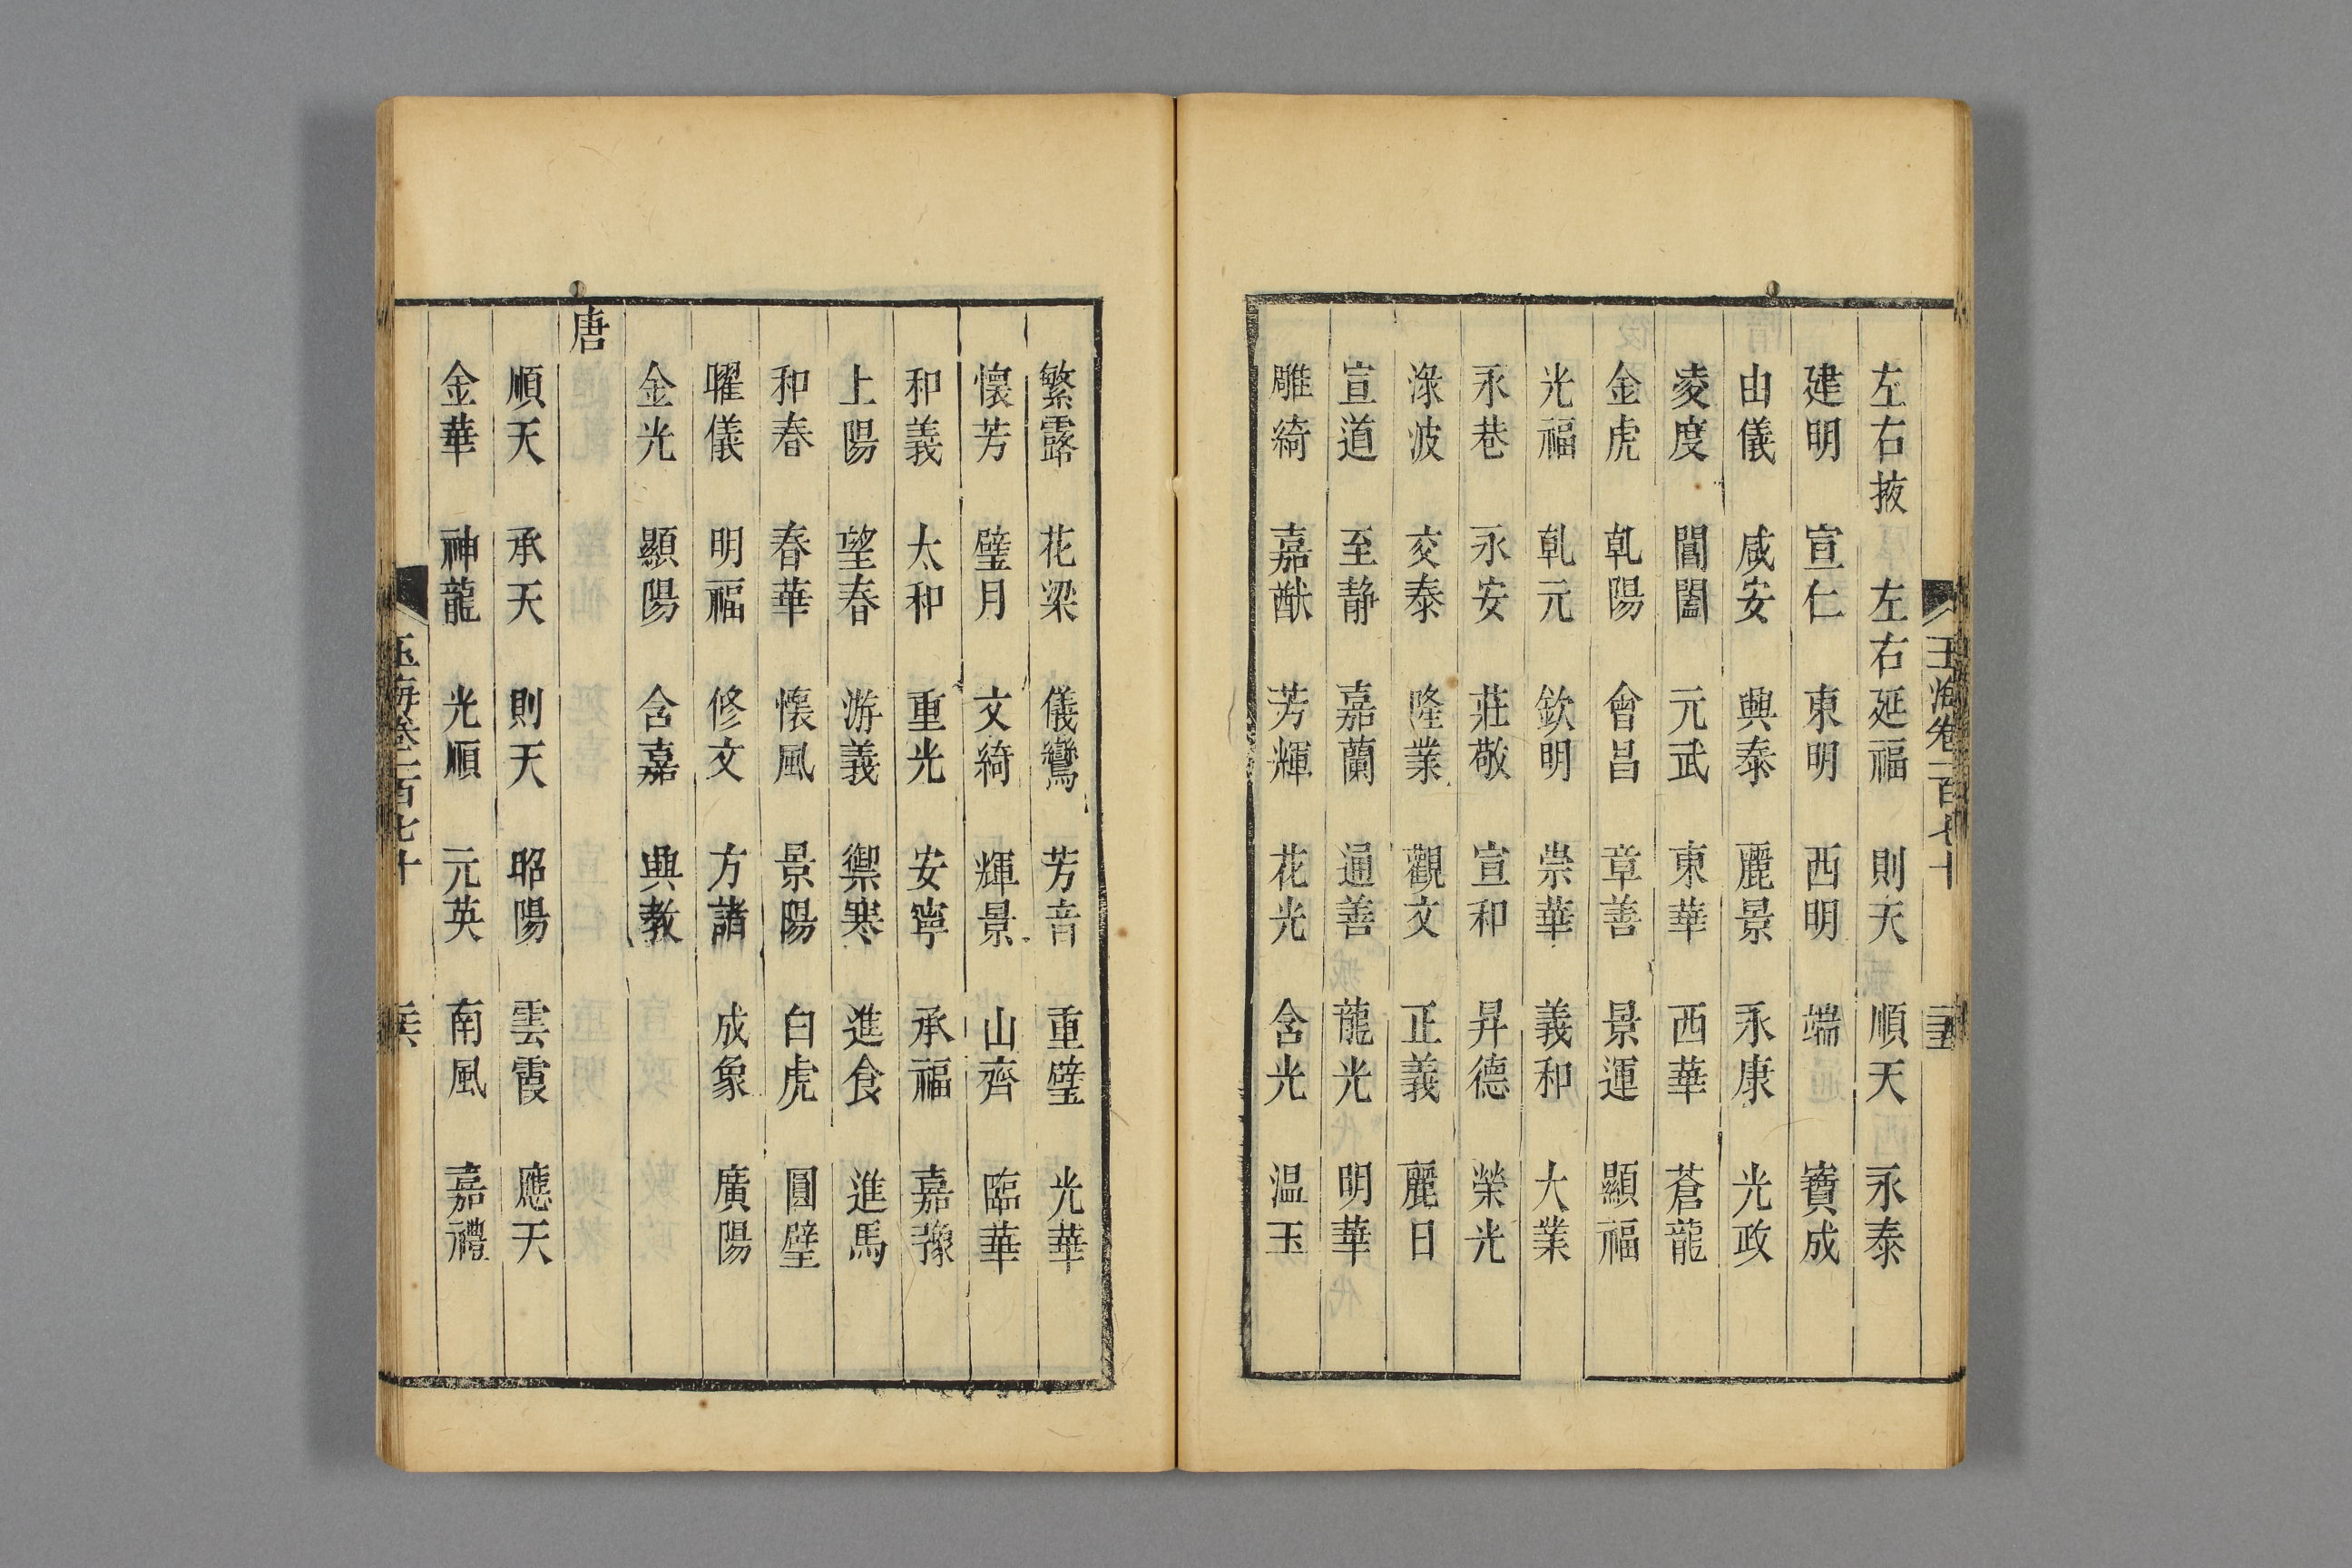 左右掖　左右延福　則天　順天　永泰
建明　宣仁　東明　西明　端　寶成
由儀　咸安　興泰　麗景　永康　光政
凌度　閶闔　元武　東華　西華　蒼龍
金虎　乹陽　會昌　章善　景運　顯福
光福　乹元　欽明　崇華　義和　大業
永巷　永安　莊敬　宣和　昇德　榮光
淥波　交泰　隆業　觀文　正義　麗日
宣道　至靜　嘉蘭　通善　龍光　明華
雕綺　嘉猷　芳輝　花光　含光　温玉
繁露　花梁　儀鸞　芳音　重璧　光華
懷芳　璧月　文綺　輝景　山齊　臨華
和義　太和　重光　安寧　承福　嘉豫
上陽　望春　游義　禦寒　進食　進馬
和春　春華　懷風　景陽　白虎　圓璧
曜儀　明福　修文　方諸　成象　廣陽
金光　顯陽　含嘉　興教
唐
順天　承天　則天　昭陽　雲霞　應天
金華　神龍　光順　元英　南風　嘉禮
玉海卷一百七十